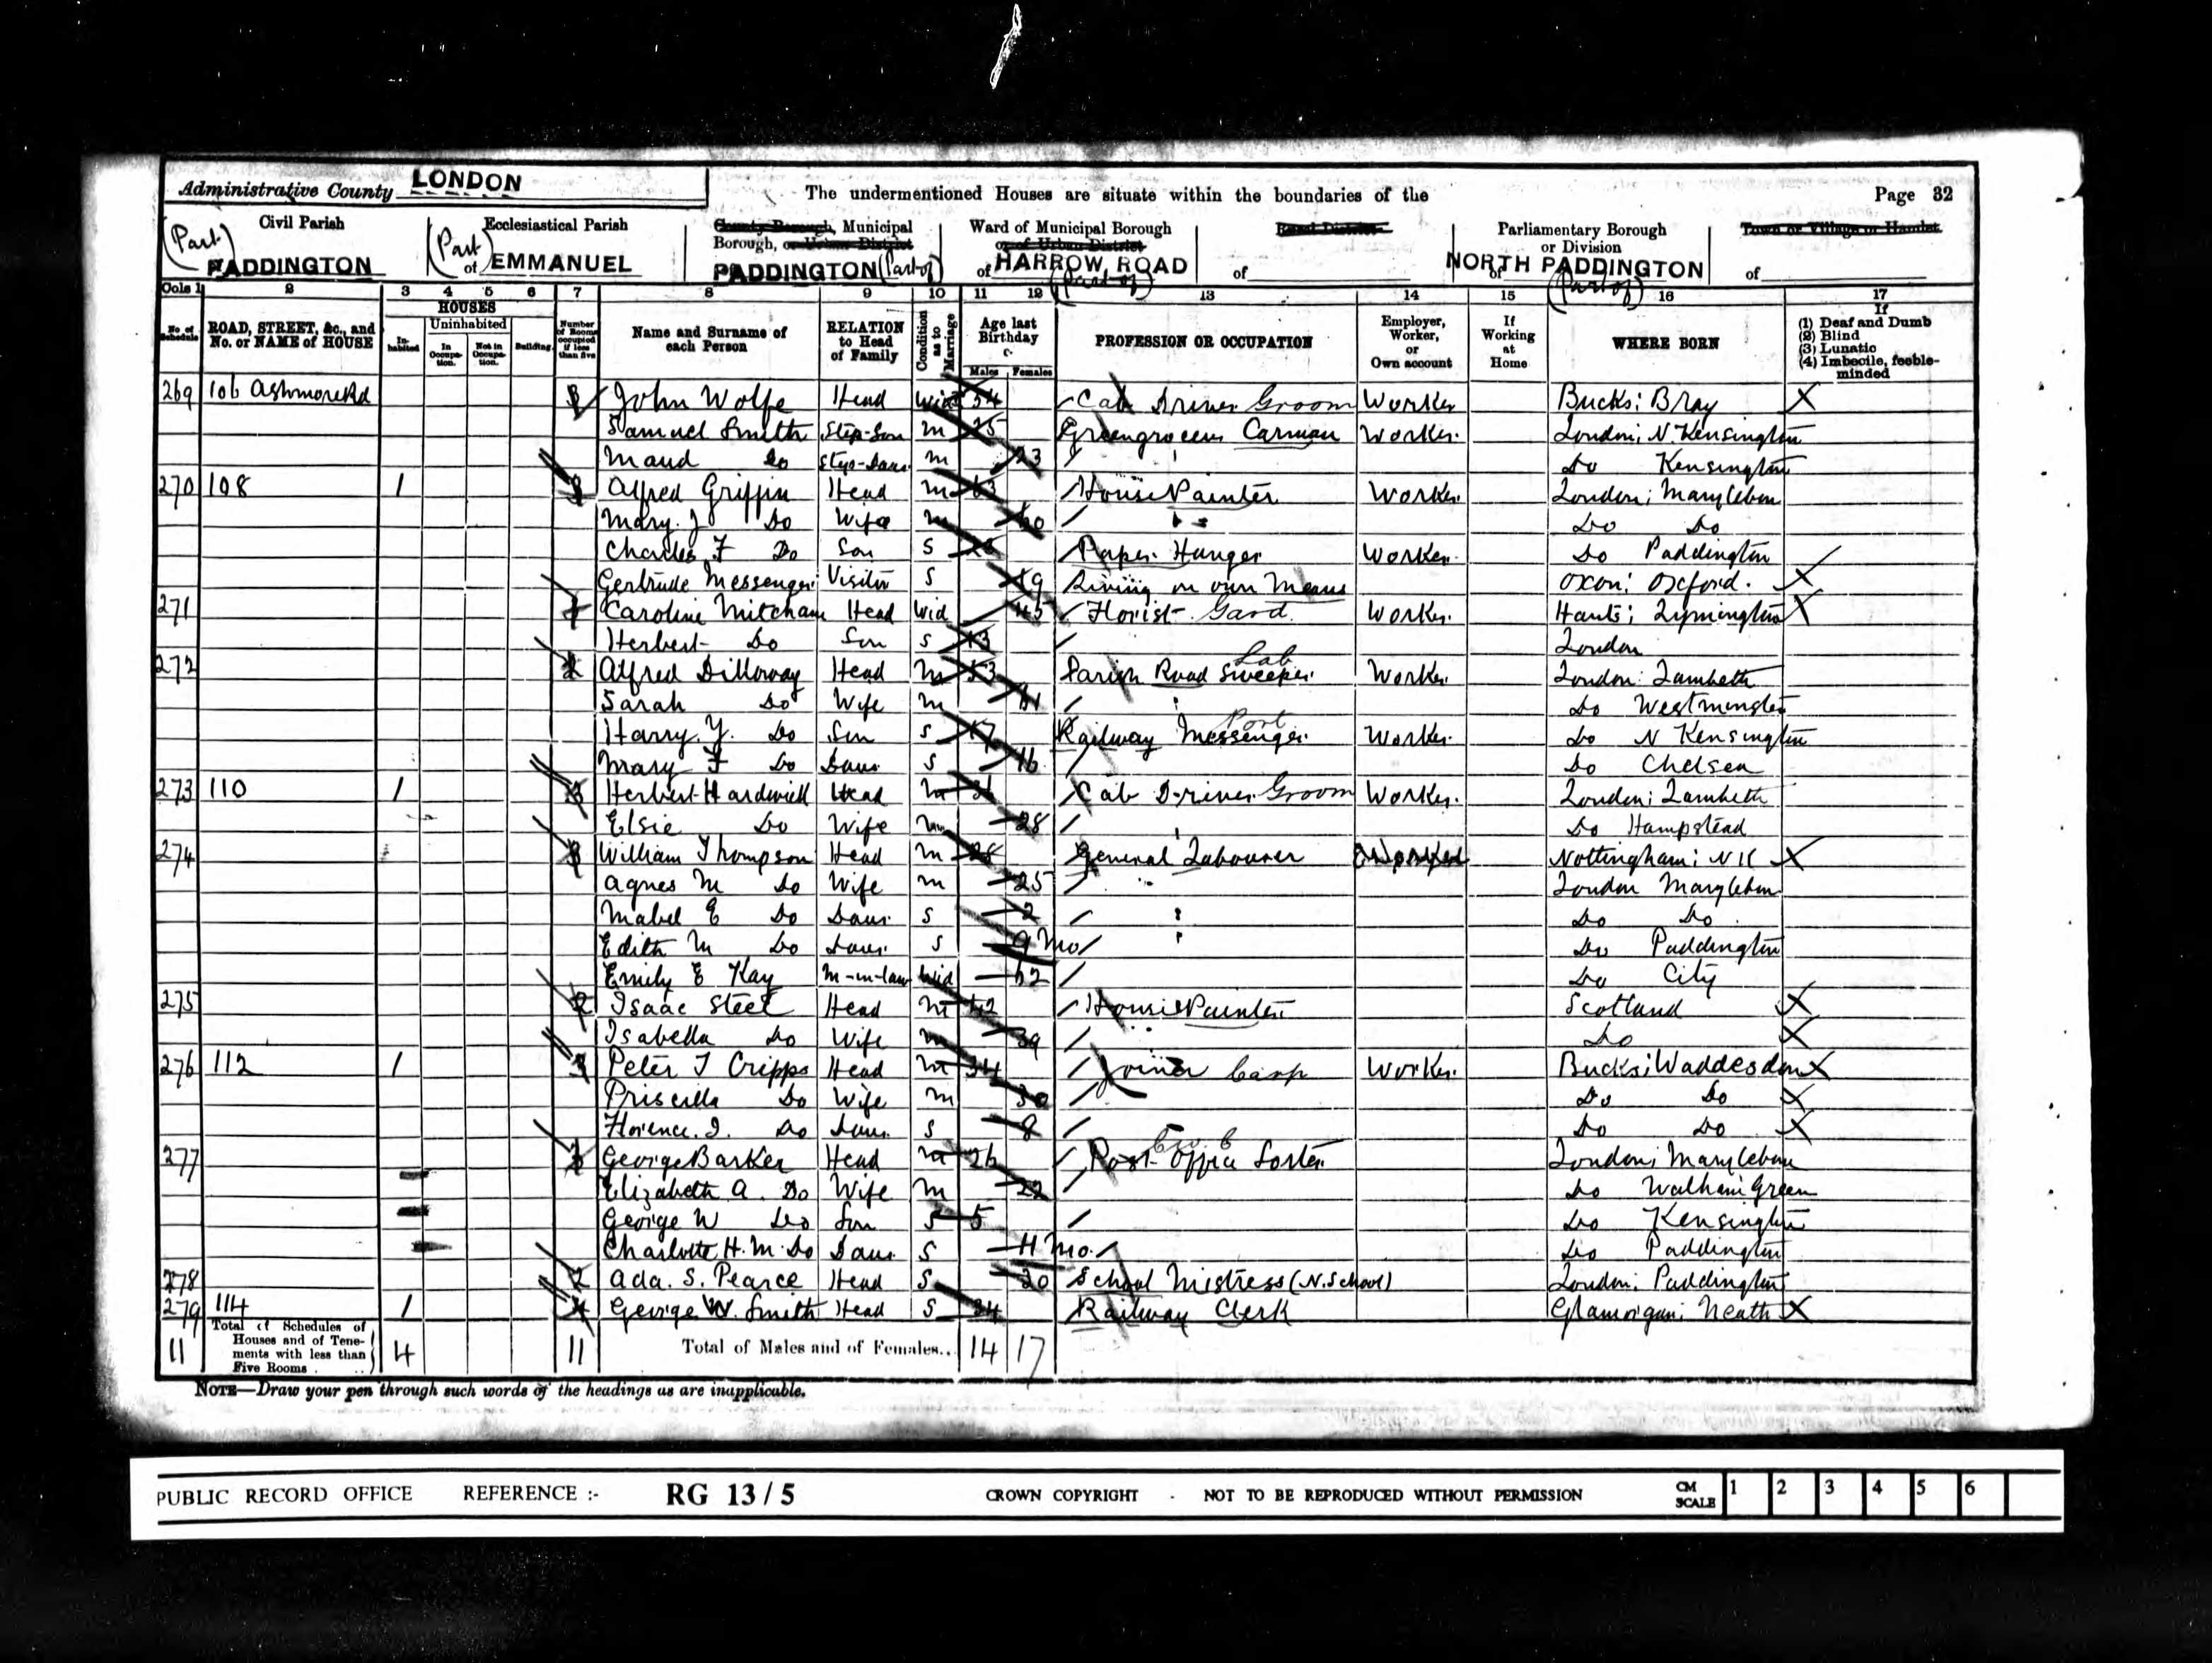 Administrative County LONDON The undermentioned Houses are situate within the boundaries of the Page 32
(Part) Civil Parish PADDINGTON
(Part of) Ecclesiastical Parish EMMANUEL
County Borough, Municipal Borough, or Urban District PADDINGTON (Part of)
Ward of Municipal Borough or of Urban District of HARROW ROAD (Part of)
Rural District of
Parliamentary Borough or Division of NORTH PADDINGTON (Part of)
Town or Village or Hamlet of
Cols 1 2 3 4 5 6 7 8 9 10 11 12 13 14 15 16 17
No. of Schedule
ROAD, STREET, &c., and No. or NAME of HOUSE
HOUSES
Inhabited
Uninhabited
In Occupation.
Not in Occupation.
Building.
Number of Rooms occupied if less than five
Name and Surname of each Person
RELATION to Head of Family
Condition as to Marriage
Age last Birthday
Males Females
PROFESSION OR OCCUPATION
Employer, Worker, or Own account
If Working at Home
WHERE BORN
If
(1) Deaf and Dumb
(2) Blind
(3) Lunatic
(4) Imbecile, feeble-minded
269 106 Ashmore Rd John Wolfe Head Wid 54 Cab Driver Groom Worker Bucks: Bray
Samuel Smith Step-Son m 25 Greengrocers Carman Worker London; N. Kensington
Maud Do Step-Daur m 23 Do Kensington
270 108 1 3 Alfred Griffin Head m 63 House Painter Worker London; Marylebon
Mary. J Do Wife m 60 Do Do
Charles F Do Son S Paper Hanger Worker Do Paddington
Gertrude Messenger Visitor S 19 Living on own Means Oxon: Oxford.
271 1 Caroline Mitcham Head Wid 45 Florist Gard. Worker Hants; Lymington
Herbert Do Son S 13 London
272 2 Alfred Dilloway Head m 53 Parish Road Sweeper Lab Worker London: Lambeth
Sarah Do Wife m Do Westminster
Harry. Y. Do Son S 17 Railway Messenger Port Worker Do N Kensington
Mary F Do Daur S 16 Do Chelsea
273 110 1 3 Herbert Hardwick Head m Cab Driver Groom Worker London; Lambeth
Elsie Do Wife m 28 Do Hampstead
274 3 William Thompson Head m 28 General Labourer Worker Nottingham: NK
Agnes M Do Wife m 25 London Marylebon
Mabel E Do Daur S 2 Do Do
Edith M Do Daur S 9 Mo Do Paddington
Emily E Kay M-in-law Wid 62 Do City
275 2 Isaac Steel Head m 42 House Painter Scotland
Isabella Do Wife m 39 Do
276 112 1 3 Peter J Cripps Head m 34 Joiner Carp Worker Bucks; Waddesdon
Priscilla Do Wife m 30 Do Do
Florence. I. Do Daur S 8 Do Do
277 3 George Barker Head m 26 Post Office Sorter London; Marylebon
Elizabeth A. Do Wife m 22 Do Walham Green
George W Do Son S 5 Do Kensington
Charlotte H. M. Do Daur S 11 Mo. Do Paddington
278 2 Ada. S. Pearce Head S 20 School Mistress (N. School) London: Paddington
279 114 1 4 George W. Smith Head S 34 Railway Clerk Glamorgan; Neath
11 Total of Schedules of Houses and of Tenements with less than Five Rooms 4 11 Total of Males and of Females.. 14 17
NOTE—Draw your pen through such words of the headings as are inapplicable.
PUBLIC RECORD OFFICE REFERENCE :- RG 13/5 CROWN COPYRIGHT - NOT TO BE REPRODUCED WITHOUT PERMISSION CM SCALE 1 2 3 4 5 6